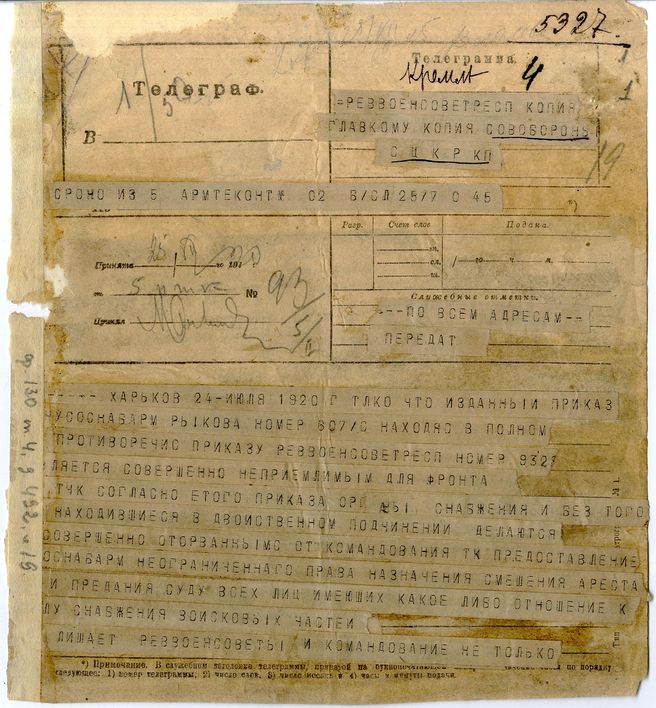 5327.
Телеграф.
Телеграмма.
Кремль 4
1
В
=РЕВВОЕНСОВЕТРЕСП КОПИЯ
ГЛАВКОМУ КОПИЯ СОВОБОРОНЬ
С Ц К Р КП
19
СРОНО ИЗ 5 АРМТЕКОНТЖ 02 Б/СЛ 25/7 0 45
Разр. Счет слов. Подана.
Принята го 191
от № 93/
Принял
го ч. м.
Служебные отметки.
---ПО ВСЕМ АДРЕСАМ--
ПЕРЕДАТ
----- ХАРЬКОВ 24-ИЮЛЯ 1920 Г ТЛКО ЧТО ИЗДАННЫИ ПРИКАЗ
УСОСНАБАРМ РЫКОВА НОМЕР 607/С НАХОДЯС В ПОЛНОМ
ПРОТИВОРЕЧИС ПРИКАЗУ РЕВВОЕНСОВЕТРЕСП НОМЕР 932З
ЛЯЕТСЯ СОВЕРШЕННО НЕПРИЕМЛИМЫМ ДЛЯ ФРОНТА
ТЧК СОГЛАСНО ЕТОГО ПРИКАЗА ОРГ НЫ СНАБЖЕНИЯ И БЕЗ ТОГО
НАХОДИВШИЕСЯ В ДВОИСТВЕННОМ ПОДЧИНЕНИИ ДЕЛАЮТСЯ
СОВЕРШЕННО ОТОРВАННЫМС ОТ КОМАНДОВАНИЯ ТК ПРЕДОСТАВЛЕНИЕ
ОСНАБАРМ НЕОГРАНИЧЕННАГО ПРАВА НАЗНАЧЕНИЯ СМЕШЕНИЯ АРЕСТА
И ПРЕДАНИЯ СУДУ ВСЕХ ЛИЦ ИМЕЮЩИХ КАКОЕ ЛИБО ОТНОШЕНИЕ К
ЛУ СНАБЖЕНИЯ ВОИСКОВЫХ ЧАСТЕИ
ЛИШАЕТ РЕВВОЕНСОВЕТЫ И КОМАНДОВАНИЕ НЕ ТОЛЬКО
*) Примечание. В служебном заголовке телеграммы, принятой на буквопечатающем по порядку
следующее: 1) номер телеграммы, 2) число слов, 3) число месяца и 4) часы и минуты подачи.
ф 130 оп 4, д 492 л 16